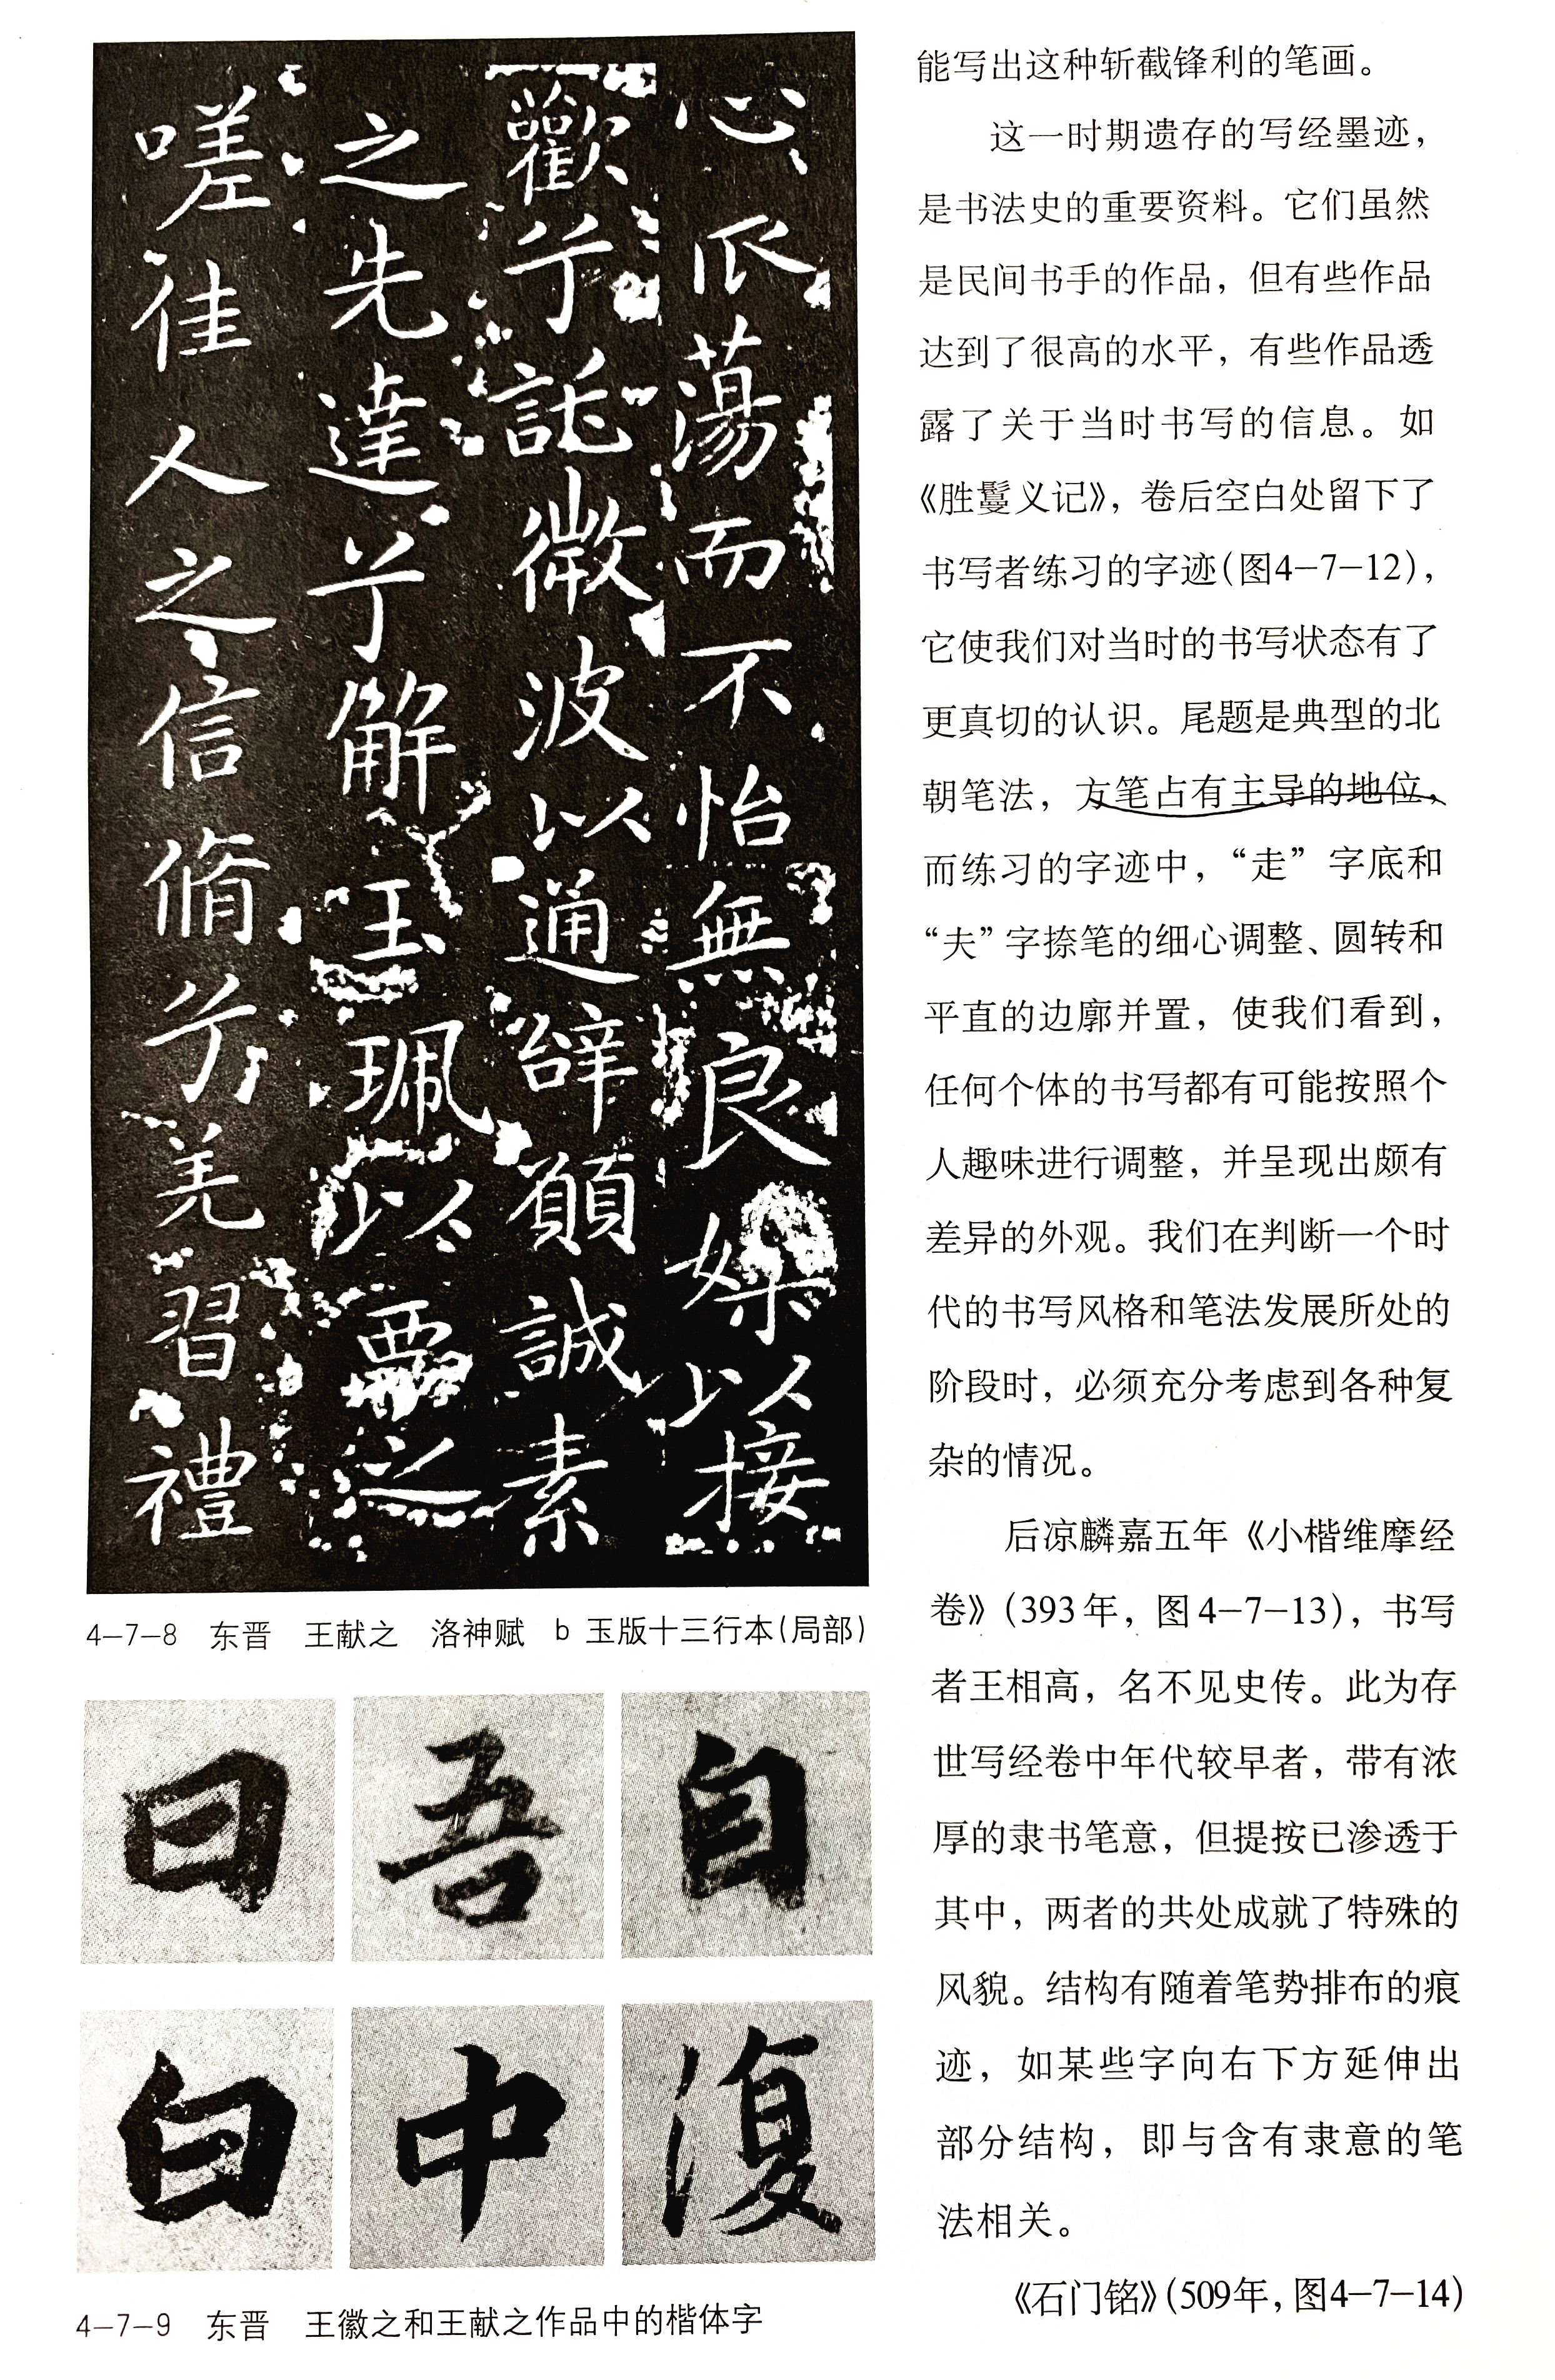 心爪蕩而不怡無良媒以接
歡兮託微波以通辞願誠素
之先達兮解玉珮以要之
嗟佳人之信脩兮羌習禮
4-7-8 东晋 王献之 洛神赋 b 玉版十三行本(局部)
曰 吾 自
白 中 復
4-7-9 东晋 王徽之和王献之作品中的楷体字
能写出这种斩截锋利的笔画。
这一时期遗存的写经墨迹，
是书法史的重要资料。它们虽然
是民间书手的作品，但有些作品
达到了很高的水平，有些作品透
露了关于当时书写的信息。如
《胜鬘义记》，卷后空白处留下了
书写者练习的字迹(图4-7-12)，
它使我们对当时的书写状态有了
更真切的认识。尾题是典型的北
朝笔法，方笔占有主导的地位，
而练习的字迹中，“走”字底和
“夫”字捺笔的细心调整、圆转和
平直的边廓并置，使我们看到，
任何个体的书写都有可能按照个
人趣味进行调整，并呈现出颇有
差异的外观。我们在判断一个时
代的书写风格和笔法发展所处的
阶段时，必须充分考虑到各种复
杂的情况。
后凉麟嘉五年《小楷维摩经
卷》(393年，图4-7-13)，书写
者王相高，名不见史传。此为存
世写经卷中年代较早者，带有浓
厚的隶书笔意，但提按已渗透于
其中，两者的共处成就了特殊的
风貌。结构有随着笔势排布的痕
迹，如某些字向右下方延伸出
部分结构，即与含有隶意的笔
法相关。
《石门铭》(509年，图4-7-14)